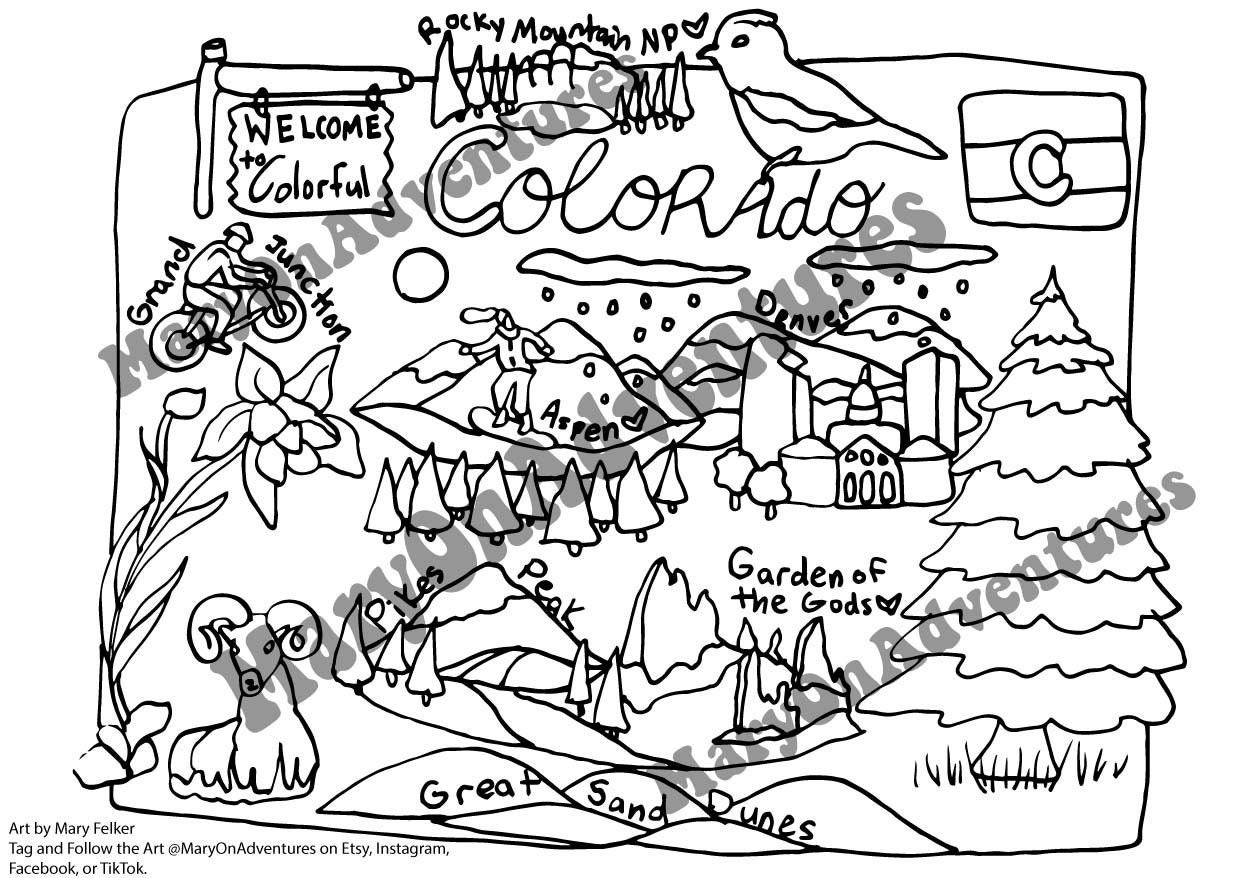 Rocky Mountain NP
WELCOME
to
Colorful
COLORADO
C
Grand Junction
Denver
Aspen
Pikes Peak
Garden of
the Gods
Great Sand Dunes
MaryOnAdventures
MaryOnAdventures
MaryOnAdventures
MaryOnAdventures
Art by Mary Felker
Tag and Follow the Art @MaryOnAdventures on Etsy, Instagram,
Facebook, or TikTok.